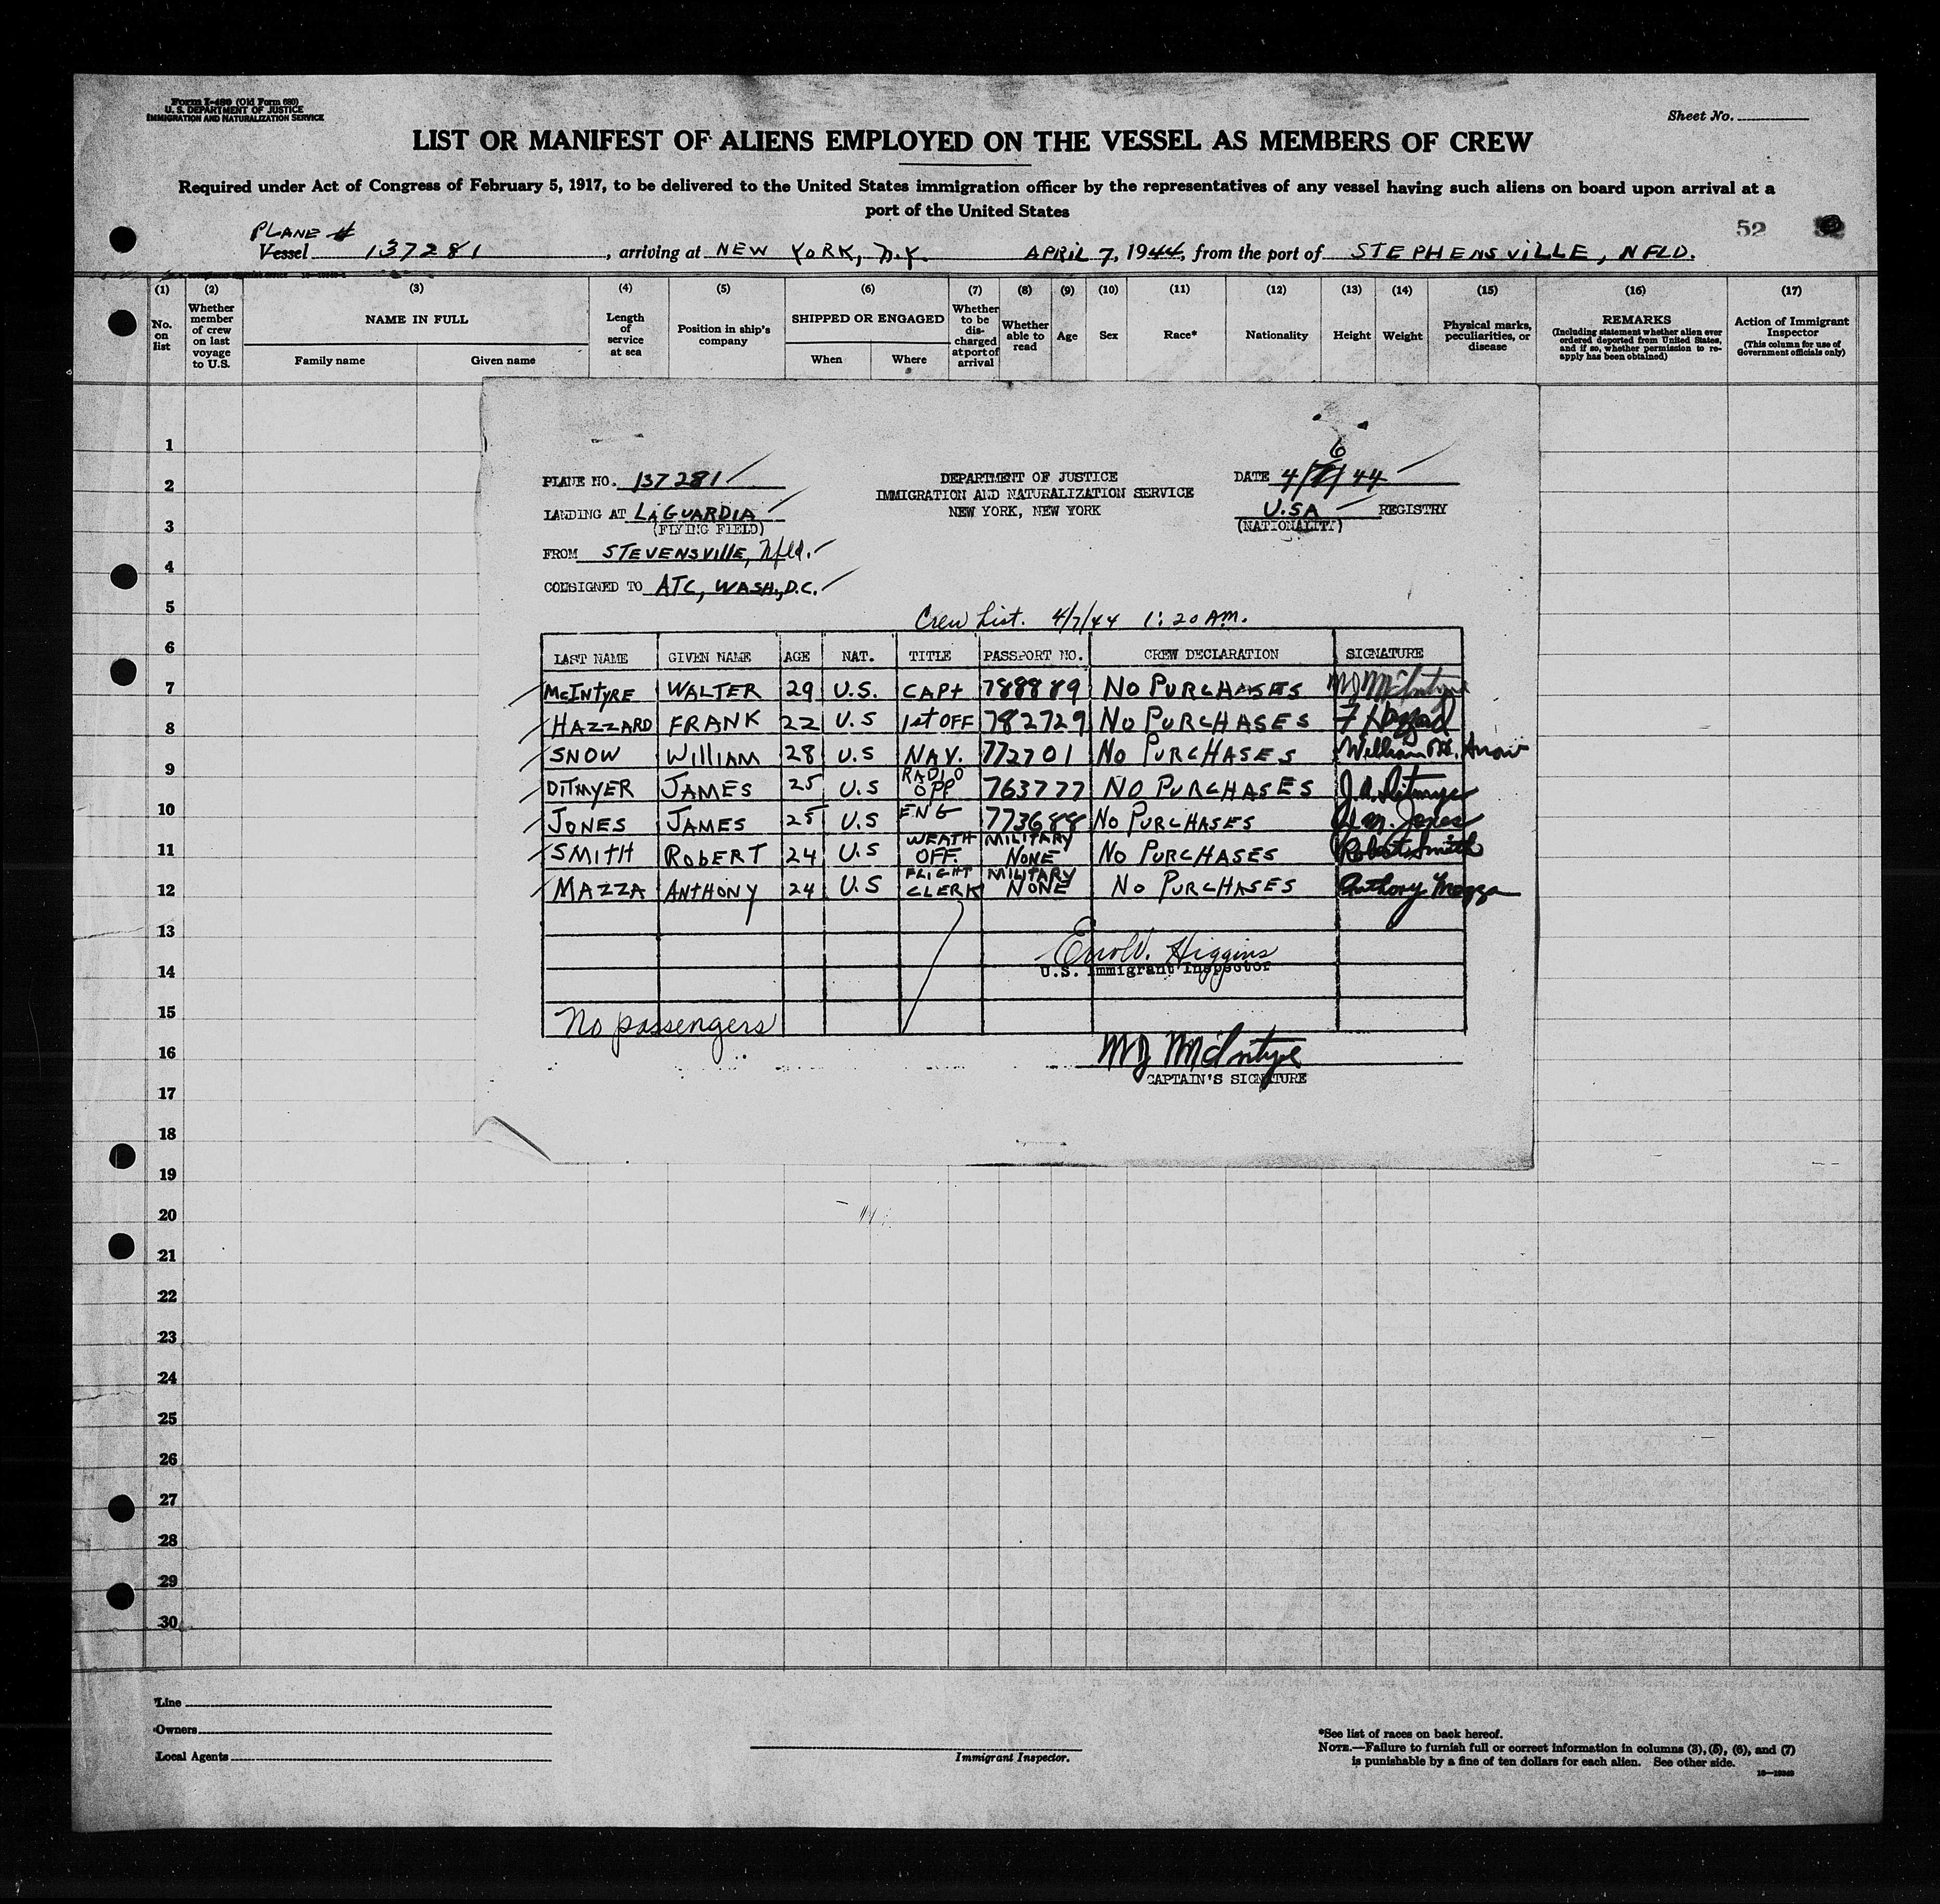 Form I-480 (Old Form 680)
U. S. DEPARTMENT OF JUSTICE
IMMIGRATION AND NATURALIZATION SERVICE
Sheet No.
LIST OR MANIFEST OF ALIENS EMPLOYED ON THE VESSEL AS MEMBERS OF CREW
Required under Act of Congress of February 5, 1917, to be delivered to the United States immigration officer by the representatives of any vessel having such aliens on board upon arrival at a
port of the United States
52
PLANE #
Vessel 137281, arriving at NEW YORK, N.Y. APRIL 7, 1944, from the port of STEPHENSVILLE, NFLD.
(1) (2) (3) (4) (5) (6) (7) (8) (9) (10) (11) (12) (13) (14) (15) (16) (17)
No. on list
Whether member of crew on last voyage to U.S.
NAME IN FULL
Family name Given name
Length of service at sea
Position in ship's company
SHIPPED OR ENGAGED
When Where
Whether to be discharged at port of arrival
Whether able to read
Age
Sex
Race*
Nationality
Height
Weight
Physical marks, peculiarities, or disease
REMARKS
(Including statement whether alien ever ordered deported from United States, and if so, whether permission to reapply has been obtained)
Action of Immigrant Inspector
(This column for use of Government officials only)
PLANE NO. 137281
DEPARTMENT OF JUSTICE
IMMIGRATION AND NATURALIZATION SERVICE
NEW YORK, NEW YORK
6
DATE 4/7/44
LANDING AT LAGUARDIA
(FLYING FIELD)
U.SA REGISTRY
(NATIONALITY)
FROM STEVENSVILLE, Nfld.
CONSIGNED TO ATC, WASH., D.C.
Crew List. 4/7/44 1:20 A.M.
LAST NAME GIVEN NAME AGE NAT. TITLE PASSPORT NO. CREW DECLARATION SIGNATURE
McINTYRE WALTER 29 U.S. CAPt 788889 NO PURCHASES WJ McIntyre
HAZZARD FRANK 22 U.S 1st OFF 782729 NO PURCHASES F Hazzard
SNOW WILLIAM 28 U.S NAV. 772701 NO PURCHASES William M. Snow
DITMYER JAMES 25 U.S RADIO OPP 763777 NO PURCHASES J.A. Ditmyer
JONES JAMES 25 U.S ENG 773688 NO PURCHASES J. M. Jones
SMITH ROBERT 24 U.S WEATH OFF. MILITARY NONE NO PURCHASES Robert Smith
MAZZA ANTHONY 24 U.S FLIGHT CLERK MILITARY NONE NO PURCHASES Anthony Mazza
Errol V. Higgins
U.S. Immigrant Inspector
No passengers
WJ McIntyre
CAPTAIN'S SIGNATURE
1
2
3
4
5
6
7
8
9
10
11
12
13
14
15
16
17
18
19
20
21
22
23
24
25
26
27
28
29
30
Line
Owners
Local Agents
Immigrant Inspector.
*See list of races on back hereof.
NOTE.—Failure to furnish full or correct information in columns (3), (5), (6), and (7)
is punishable by a fine of ten dollars for each alien. See other side.